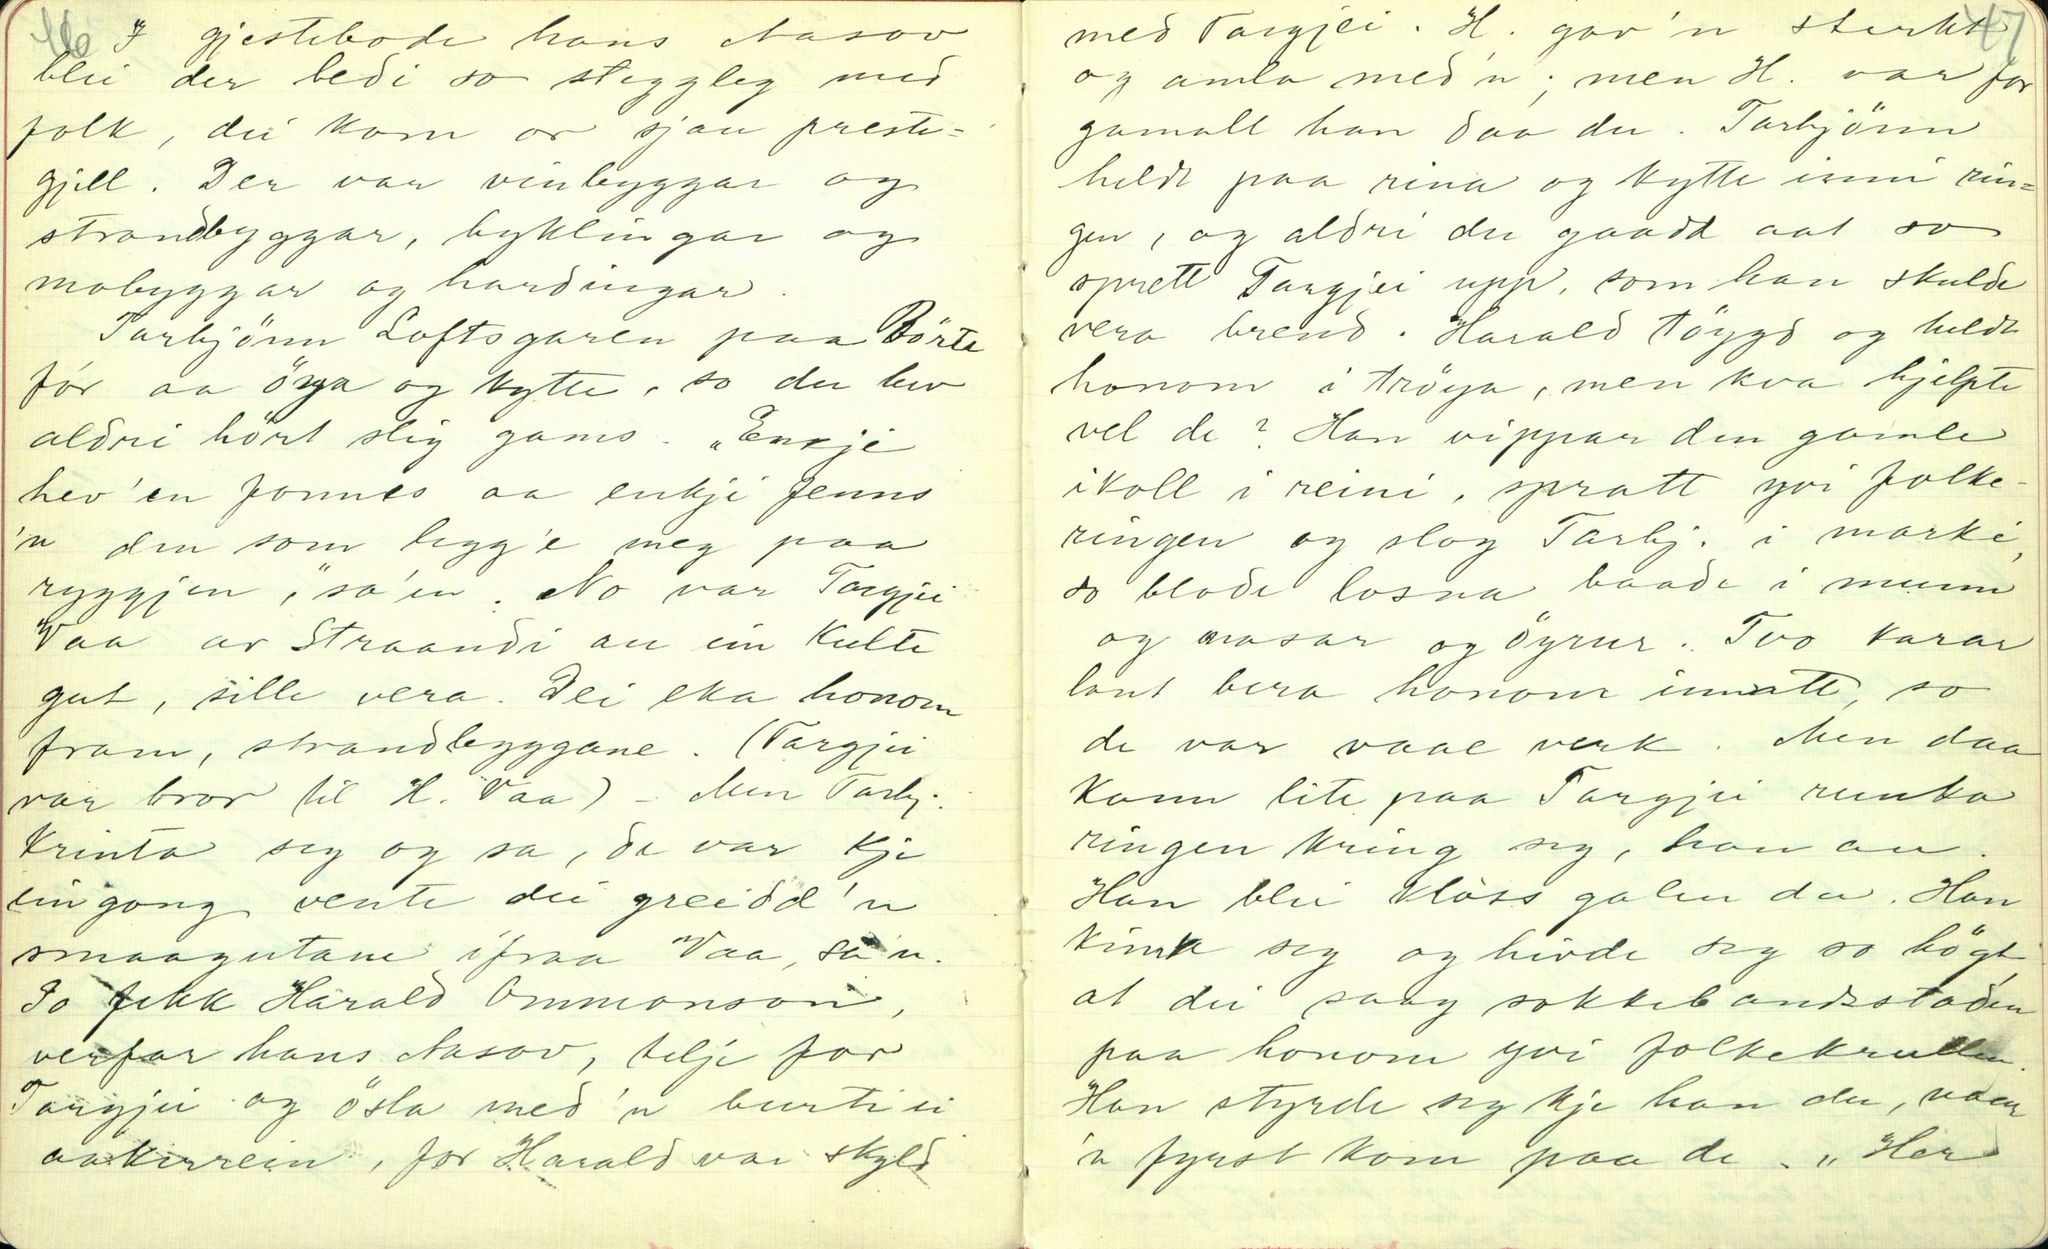 46
I gjestebode hans Aasov
blei der bedi so steggleg med
folk, dei kom or sjau preste=
gjell. Der var vinbyggar og
strandbyggar, byklingar og
mobyggar og hardingar.
Tarbjönn Loftsgaren paa Börte
fór aa öya og kytte, so du hev
aldri hört slig gams. „Enkje
hev 'en fonnes aa enkji fenns
'n den som legg'e meg paa
ryggjen," sa'en. No var Targjei
Vaa av Straandi au ein kulte
gut, sille vera. Dei eka honom
fram, strandbyggane. (Targjei
var bror til H. Vaa) - Men Tarbj.
krinta seg og sa, de var kje
eingong vente dei greidd'n
smaagutane ifraa Vaa, sa'n.
So fekk Harald Ommonson,
verfar hans Aasov, telje for
Targjei og ösla med'n burti ei
aakerrein, for Harald var skyld
47
med Targjei. H. gav'n sterkt
og amla med'n; men H. var for
gamall han daa du. Tarbjönn
heldt paa rina og kytte inni rin=
gen, og aldri du gaadd aat so
sprett Targjei upp, som han skulde
vera brend. Harald töygd og heldt
honom i tröya, men kva hjelpte
vel de? Han vippar den gamle
ikoll i reini, spratt yvi folke-
ringen og slog Tarbj. i marki,
so blode losna baade i munn
og nasar og öyrur. Tvo karar
laut bera honom innatt, so
de var vaae verk. Men daa
kann lite paa Targjei runka
ringen kring seg, han au.
Han blei klóss galen da. Han
kinka seg og hivde seg so högt
at dei saag sokkebandsstaden
paa honom yvi folkekrullen.
Han styrde seg kje han du, naar
'n fyrst kom paa de. „Her